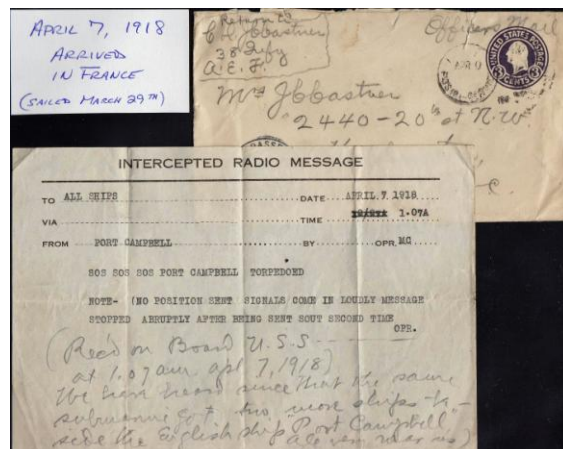 APRIL 7, 1918
ARRIVED
IN FRANCE
(SAILED MARCH 29TH)
Return to
C L Castner
38 Infy
A.E.F.
Officers Mail
UNITED STATES POSTAGE
3 CENTS 3
Mrs J C Castner
2440-20" st N.W.
INTERCEPTED RADIO MESSAGE
TO ALL SHIPS DATE APRIL 7 1918
VIA TIME 1.07A
FROM PORT CAMPBELL BY OPR. MC
SOS SOS SOS PORT CAMPBELL TORPEDOED
NOTE- (NO POSITION SENT SIGNALS COME IN LOUDLY MESSAGE
STOPPED ABRUPTLY AFTER BEING SENT SOUT SECOND TIME
OPR.
(Rec'd on Board U.S.S
at 1.07 am. apl 7, 1918)
We have heard since that the same
submarine got two more ships - 
side the English ship "Port Campbell"